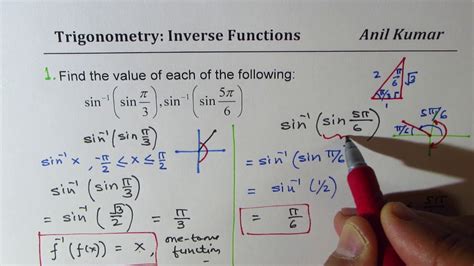 Trigonometry: Inverse Functions Anil Kumar
1. Find the value of each of the following:
sin⁻¹(sin π/3), sin⁻¹(sin 5π/6)
sin⁻¹(sin π/3)
sin⁻¹x, -π/2 ≤ x ≤ π/2
sin⁻¹(sin π/3)
= sin⁻¹(√3/2) = π/3
f⁻¹(f(x)) = x, one-to-one
function
2 π/6 √3
π/3
1
sin⁻¹(sin 5π/6)
= sin⁻¹(sin π/6
= sin⁻¹(1/2)
= π/6
π/6 5π/6